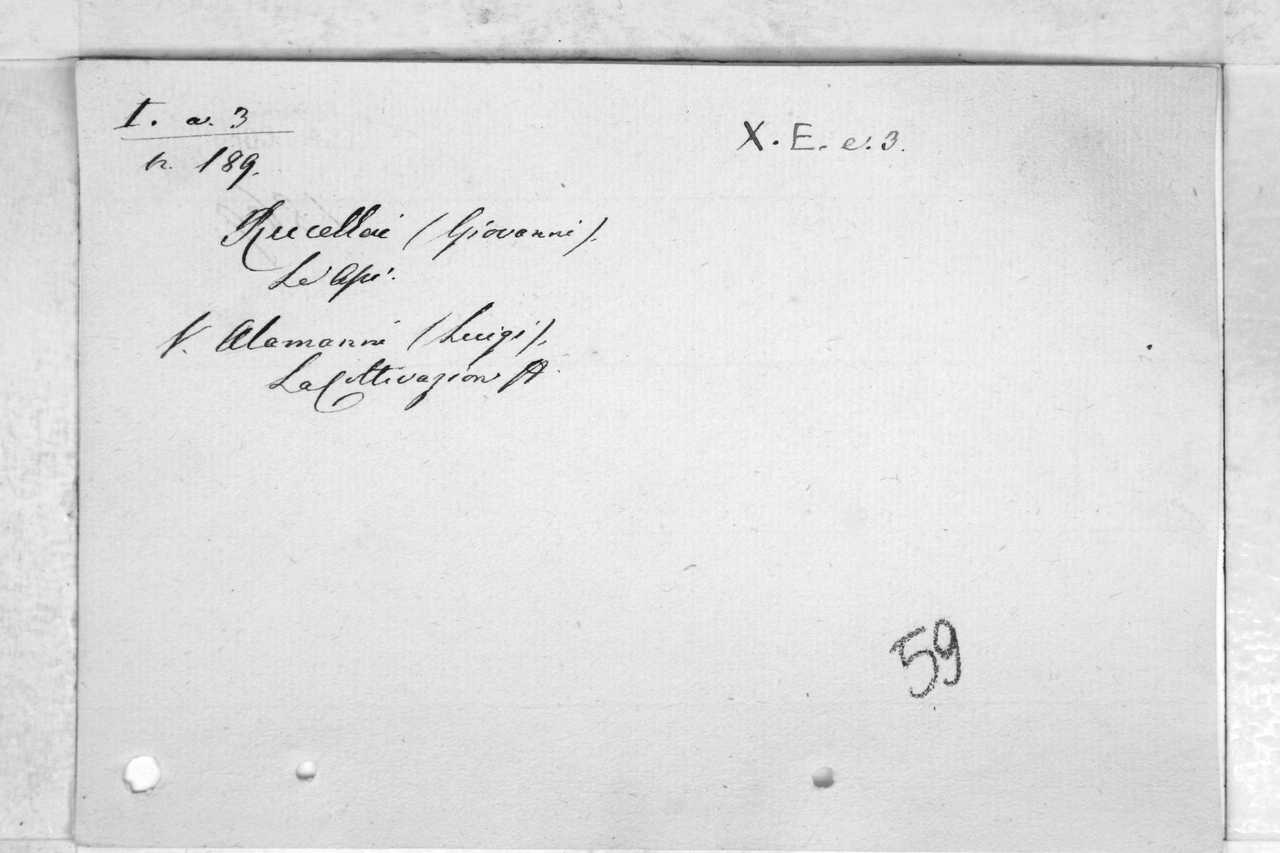 I. a. 3
X. E. e. 3.
n. 189.
Rucellai (Giovanni).
Le Api.
V. Alamanni (Luigi).
La Coltivazione
59